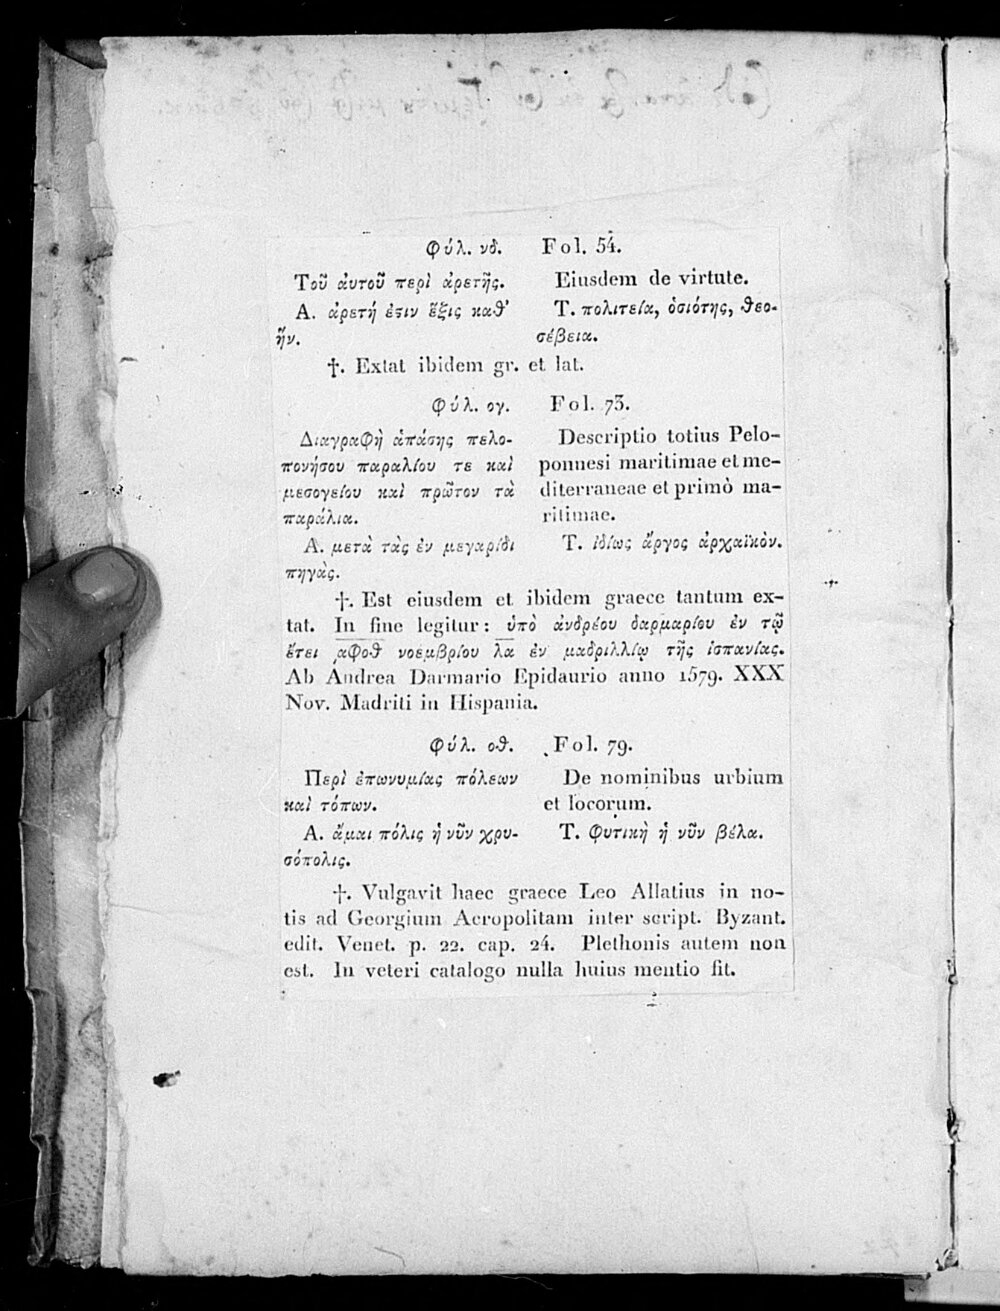 Φύλ. νδ. Fol. 54.
Τοῦ ἀυτοῦ περὶ ἀρετῆς. Eiusdem de virtute.
Α. ἀρετή ἐϛιν ἕξις καθ’ Τ. πολιτεία, ὁσιότης, θεο-
ἥν. σέβεια.
†. Extat ibidem gr. et lat.
Φύλ. ογ. Fol. 73.
Διαγραφὴ ἁπάσης πελο- Descriptio totius Pelo-
πονήσου παραλίου τε καὶ ponnesi maritimae et me-
μεσογείου καὶ πρῶτον τὰ diterraneae et primò ma-
παράλια. ritimae.
Α. μετὰ τὰς ἐν μεγαρίδι Τ. ἰδίως ἄργος ἀρχαϊκὸν.
πηγὰς.
†. Est eiusdem et ibidem graece tantum ex-
tat. In fine legitur: ὑπὸ ἀνδρέου δαρμαρίου ἐν τῷ
ἔτει ͵αφοθ νοεμβρίου λα ἐν μαδριλλίῳ τῆς ἱσπανίας.
Ab Andrea Darmario Epidaurio anno 1579. XXX
Nov. Madriti in Hispania.
Φύλ. οθ. Fol. 79.
Περὶ ἐπωνυμίας πόλεων De nominibus urbium
καὶ τόπων. et locorum.
Α. ἄμαι πόλις ἡ νῦν χρυ- Τ. φυτικὴ ἡ νῦν βέλα.
σόπολις.
†. Vulgavit haec graece Leo Allatius in no-
tis ad Georgium Acropolitam inter script. Byzant.
edit. Venet. p. 22. cap. 24. Plethonis autem non
est. In veteri catalogo nulla huius mentio fit.